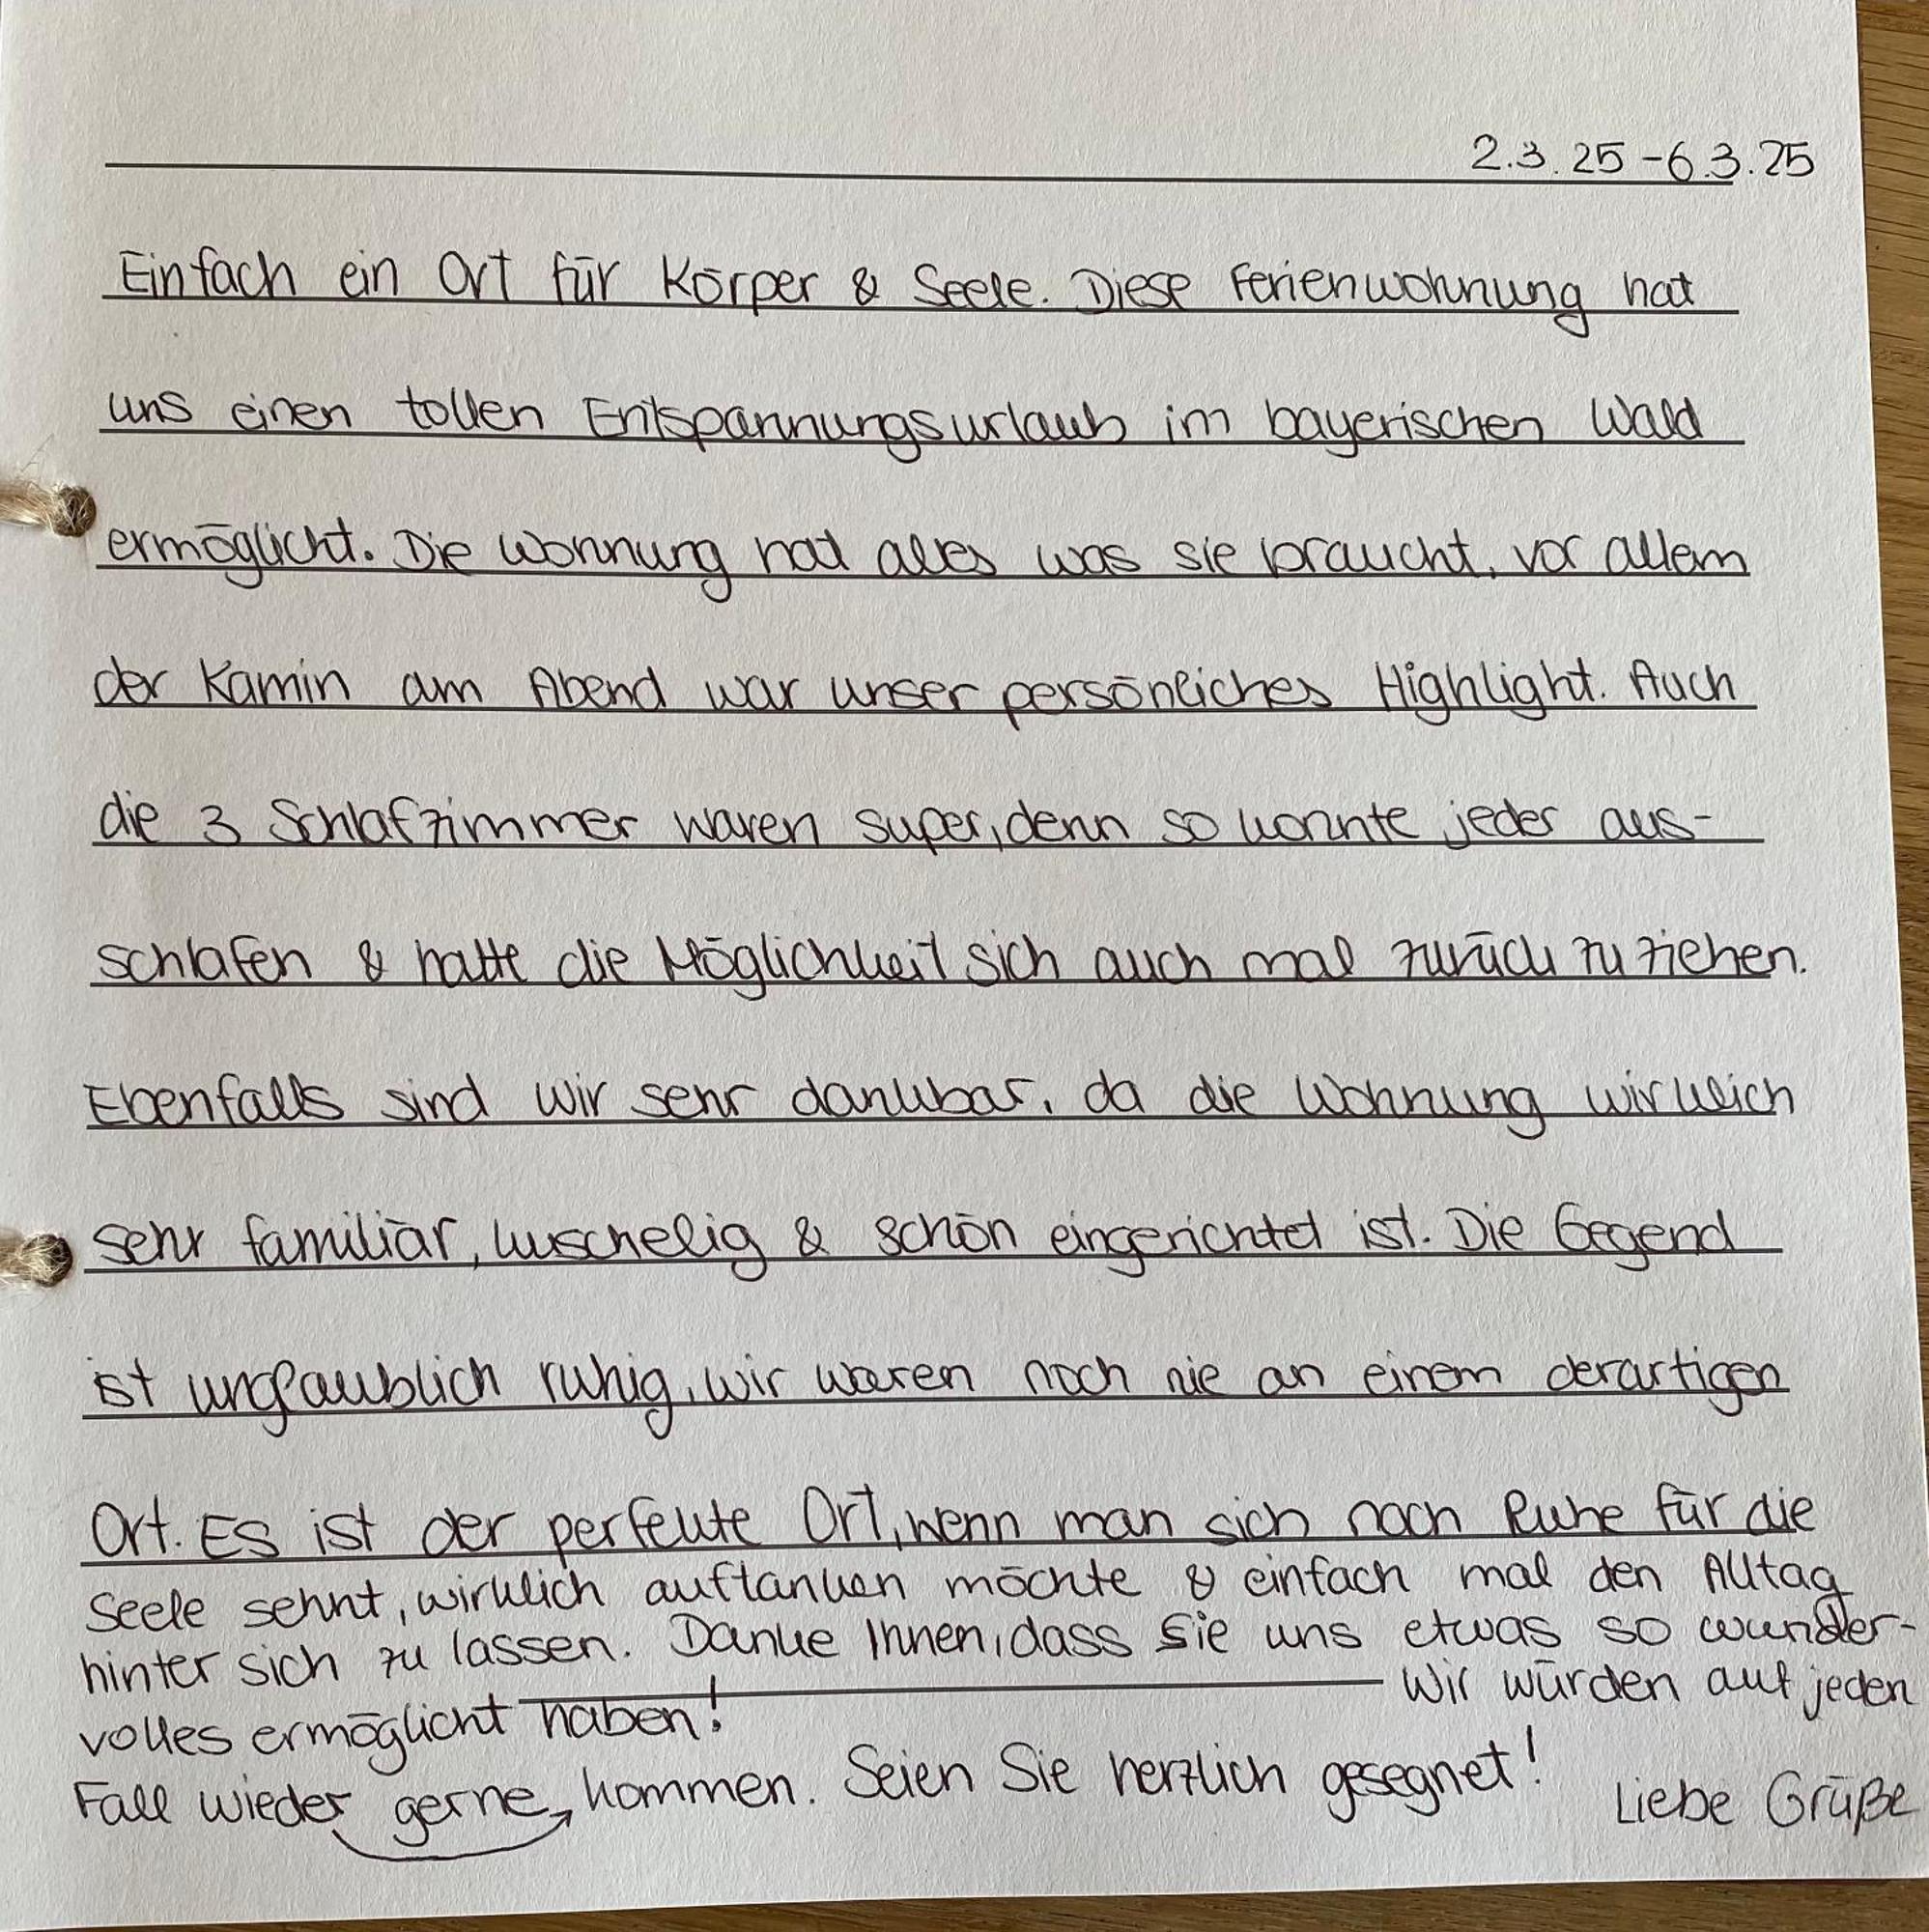 2.3.25 - 6.3.25
Einfach ein Ort für Körper & Seele. Diese Ferienwohnung hat
uns einen tollen Entspannungsurlaub im bayerischen Wald
ermöglicht. Die Wohnung hat alles was sie braucht, vor allem
der Kamin am Abend war unser persönliches Highlight. Auch
die 3 Schlafzimmer waren super, denn so konnte jeder aus-
schlafen & hatte die Möglichkeit sich auch mal zurück zu ziehen.
Ebenfalls sind wir sehr dankbar, da die Wohnung wirklich
sehr familiär, kuschelig & schön eingerichtet ist. Die Gegend
ist unglaublich ruhig, wir waren noch nie an einem derartigen
Ort. Es ist der perfekte Ort, wenn man sich nach Ruhe für die
Seele sehnt, wirklich auftanken möchte & einfach mal den Alltag
hinter sich zu lassen. Danke Ihnen, dass Sie uns etwas so wunder-
volles ermöglicht haben! Wir würden auf jeden
Fall wieder gerne kommen. Seien Sie herzlich gesegnet! Liebe Grüße